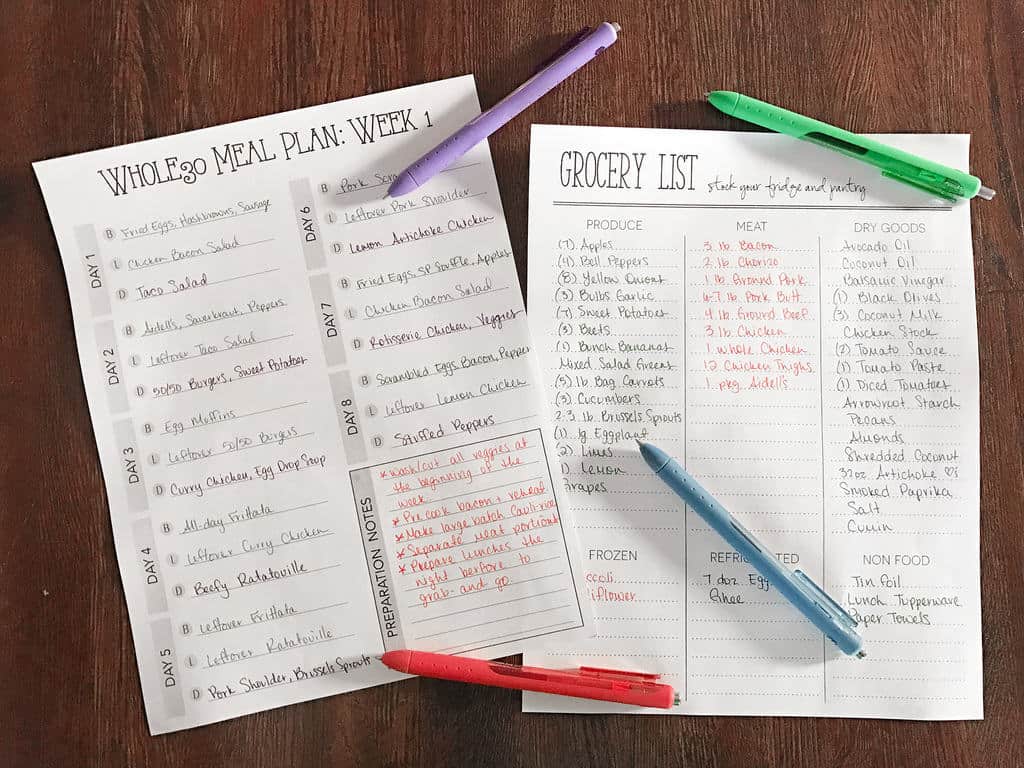 WHOLE30 MEAL PLAN: WEEK 1
DAY 1
B Fried Eggs, Hashbrowns, Sausage
L Chicken Bacon Salad
D Taco Salad
DAY 2
B Aidells, Sauerkraut, Peppers
L Leftover Taco Salad
D 50/50 Burgers, Sweet Potatoes
DAY 3
B Egg Muffins
L Leftover 50/50 Burgers
D Curry Chicken, Egg Drop Soup
DAY 4
B All-day Frittata
L Leftover Curry Chicken
D Beefy Ratatouille
DAY 5
B Leftover Frittata
L Leftover Ratatouille
D Pork Shoulder, Brussels Sprouts
DAY 6
B Pork
L Leftover Pork Shoulder
D Lemon Artichoke Chicken
DAY 7
B Fried Eggs, SP Souffle, Apples
L Chicken Bacon Salad
D Rotisserie Chicken, Veggies
DAY 8
B Scrambled Eggs, Bacon, Pepper
L Leftover Lemon Chicken
D Stuffed Peppers
PREPARATION NOTES
* Wash/cut all veggies at
the beginning of the
week
* Pre cook bacon + reheat
* Make large batch Cauli-rice
* Separate meat portions
* Prepare lunches the
night berfore to
grab-and go
GROCERY LIST stock your fridge and pantry
PRODUCE
(7) Apples
(4) Bell Peppers
(8) Yellow Onions
(3) Bulbs Garlic
(7) Sweet Potatoes
(3) Beets
(1) Bunch Bananas
Mixed Salad Greens
(5) lb Bag Carrots
(3) Cucumbers
2-3 lb Brussels Sprouts
(1) lg Eggplant
(2) Limes
1) Lemon
Grapes
MEAT
3 lb Bacon
2 lb Chorizo
1 lb Ground Pork
6-7 lb Pork Butt
4 lb Ground Beef
3 lb Chicken
1 whole Chicken
12 Chicken Thighs
1 pkg Aidell's
DRY GOODS
Avocado Oil
Coconut Oil
Balsamic Vinegar
(1) Black Olives
(3) Coconut Milk
Chicken Stock
(2) Tomato Sauce
(1) Tomato Paste
(1) Diced Tomatoes
Arrowroot Starch
Pecans
Almonds
Shredded Coconut
32oz Artichoke
Smoked Paprika
Salt
Cumin
FROZEN
REFRIG TED
7 doz Egg
Ghee
NON FOOD
Tin foil
Lunch Tupperware
Paper Towels